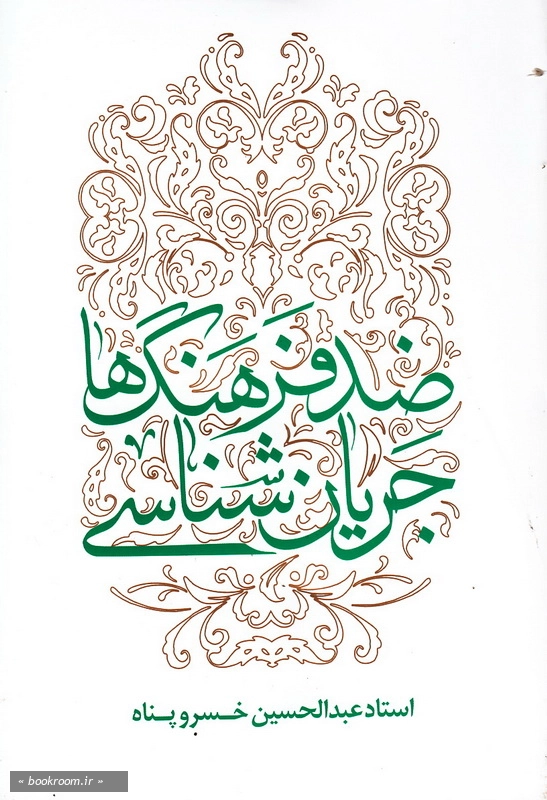 ضد فرهنگ‌ها
جریان شناسی
استاد عبدالحسین خسروپناه
« bookroom.ir »